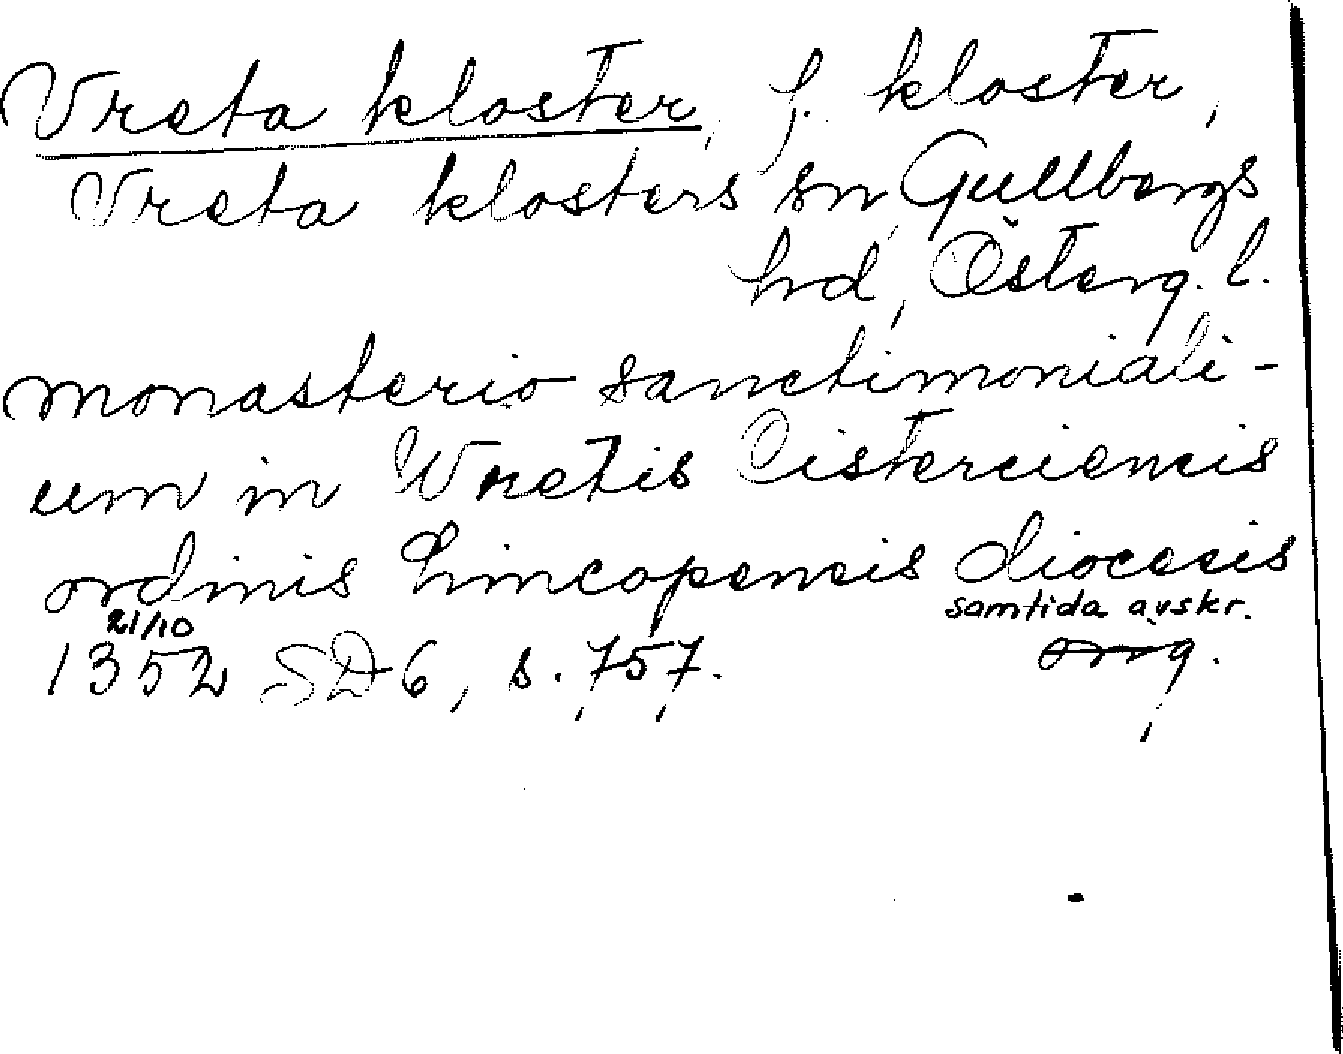 Vreta kloster, f. kloster,
Vreta klosters sn, Gullbergs
hd, Österg. l.
monasterio sanctimoniali-
um in Wretis Cisterciencis
ordinis Lincopencis diocesis
21/10 samtida avskr.
1352 SD 6, s. 757. orig.